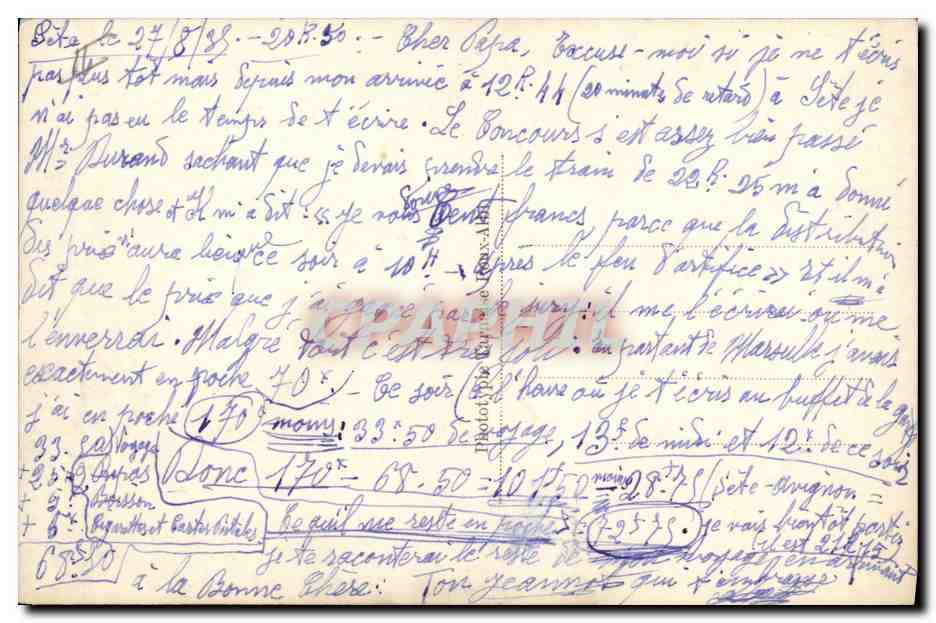 Sète le 27/8/39. - 20h.50. - Cher Papa, Excuse-moi si je ne t'écris
pas plus tôt mais depuis mon arrivée à 12h.44 (20 minutes de retard) à Sète je
n'ai pas eu le temps de t'écrire. Le Concours s'est assez bien passé
Mr Durand sachant que je devais prendre le train de 22h.25 m'a donné
quelque chose et Il m'a dit: "Je vous donne cent francs parce que la distribution
des prix aura lieu ce soir à 10H - après le feu d'artifice" et il m'a
dit que le prix que j'ai gagné par le jury il me l'écrira ou me
l'enverrai. Malgré tout c'est : en partant de Marseille j'avais
exactement en poche 70f. - Ce soir (à l'heure où je t'écris au buffet de la gare
j'ai en poche 170f moins: 33f.50 de voyage, 13f de midi et 12f. de ce soir
33.50 Voyage Donc 170f - 68.50 = 101f50 moins 28f.75 (Sète-Avignon =
+ 25f. Repas
+ 5f. Boisson Ce qu'il me reste en poche = 72f75. Je vais bientôt partir
+ 5f Cigarettes et Cartes Postales (il est 21h.15)
68f50 je te raconterai le reste de mon voyage en arrivant
à la Bonne Chere: Ton Jeannot qui t'embrasse
Phototypie Toulouse
CPAPHIL